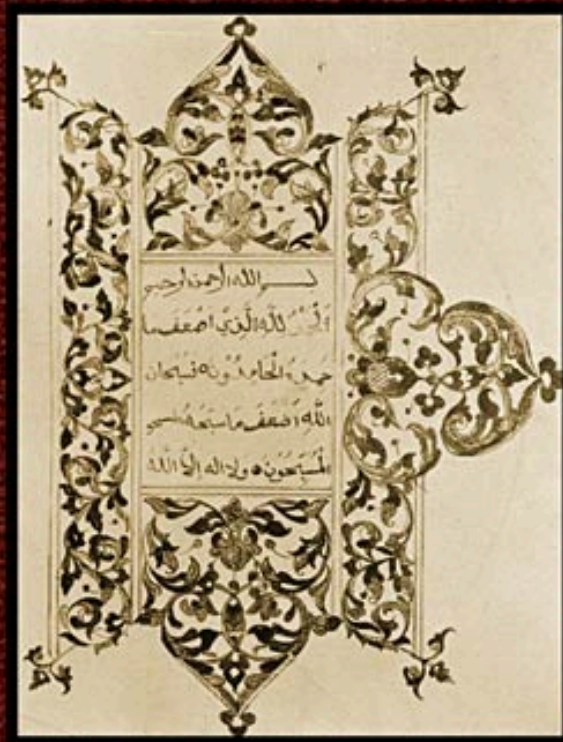 بسم الله الرحمن الرحيم
الحمد لله الذي اضعف ما
حمده الحامدون ه تسبحان
الله اضعف ما سبحه
المسبحون ه ولا اله إلا الله